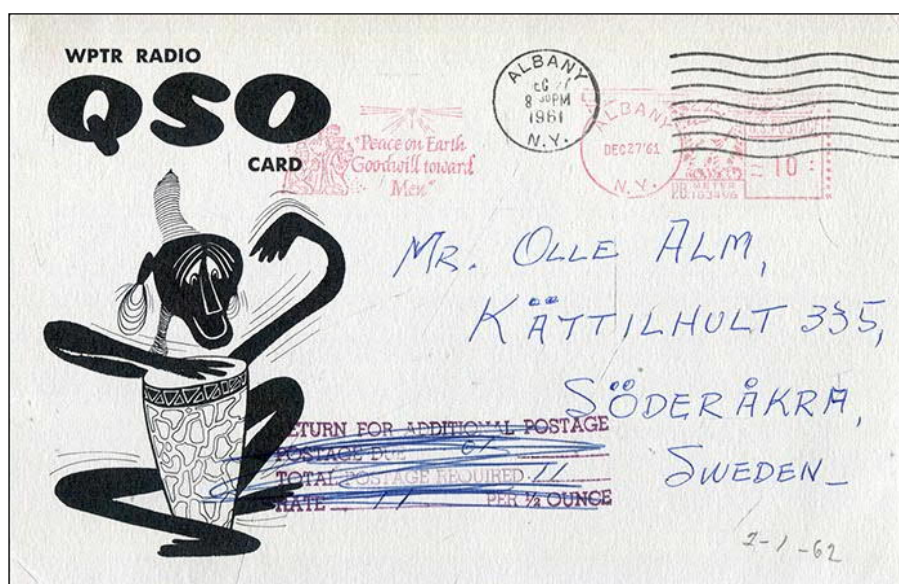 WPTR RADIO
QSO
CARD
"Peace on Earth
Goodwill toward
Men"
ALBANY
8 30 PM
1961
N.Y.
ALBANY
DEC 27 '61
N.Y.
U.S. POSTAGE
10
P.B. METER
MR. OLLE ALM,
KÄTTILHULT 335,
SÖDERÅKRA,
SWEDEN
RETURN FOR ADDITIONAL POSTAGE
POSTAGE DUE 01
TOTAL POSTAGE REQUIRED 11
RATE 11 PER ½ OUNCE
2-1-62